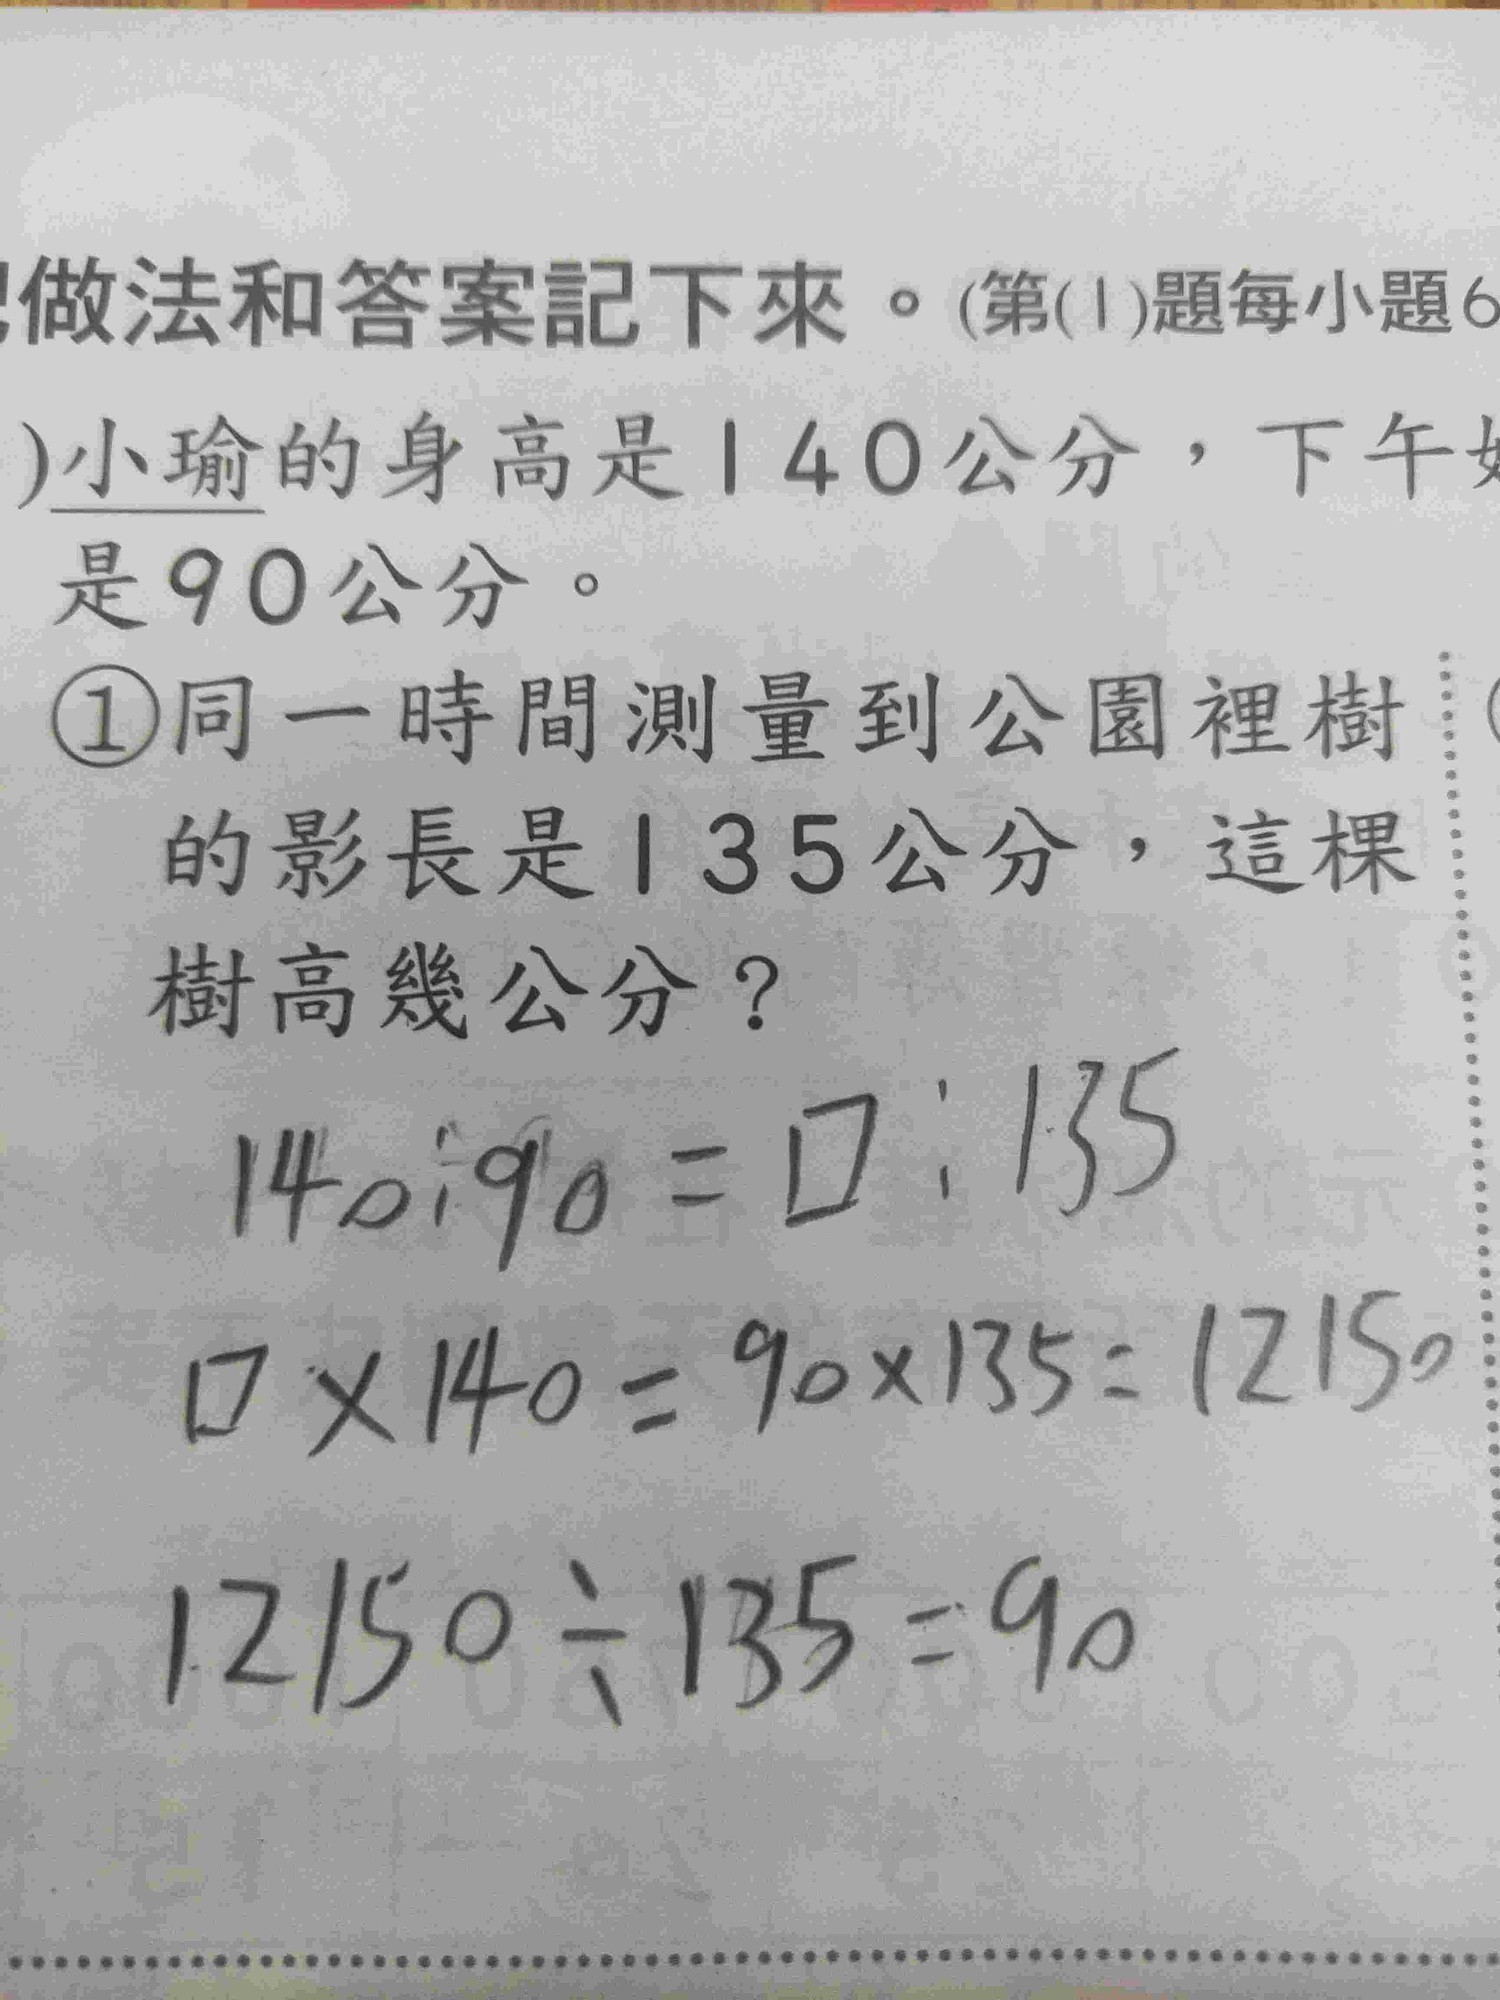 做法和答案記下來。(第(1)題每小題6
)小瑜的身高是140公分，下午
是90公分。
①同一時間測量到公園裡樹
的影長是135公分，這棵
樹高幾公分？
140:90=□:135
□×140=90×135=12150
12150÷135=90